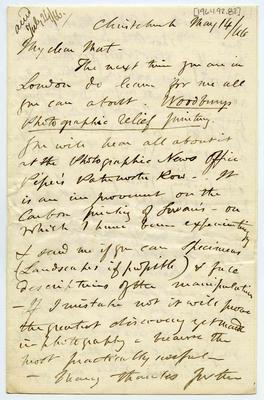 ansd
July 26/66.
[1964.92.82]
Christchurch May 14/66
My dear Mat-
The next time you are in
London do learn for me all
you can about. Woodburys
Photographic relief printing.
You will hear all about it
at the Photographic News Office
Pipers Paternoster Row - It
is an improvement on the
Carbon printing of Swans - on
which I have been experimenting
& send me if you can specimens
(Landscapes if possible) & full
descriptions of the manipulation
- If I mistake not it will prove
the greatest discovery yet made
in photography & become the
most practically useful -
- Many thanks for the